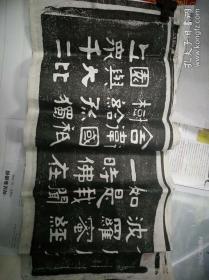 波羅蜜經
如是我聞
一時佛在
舍衛國祇
樹給孤獨
園與大比
丘眾千二